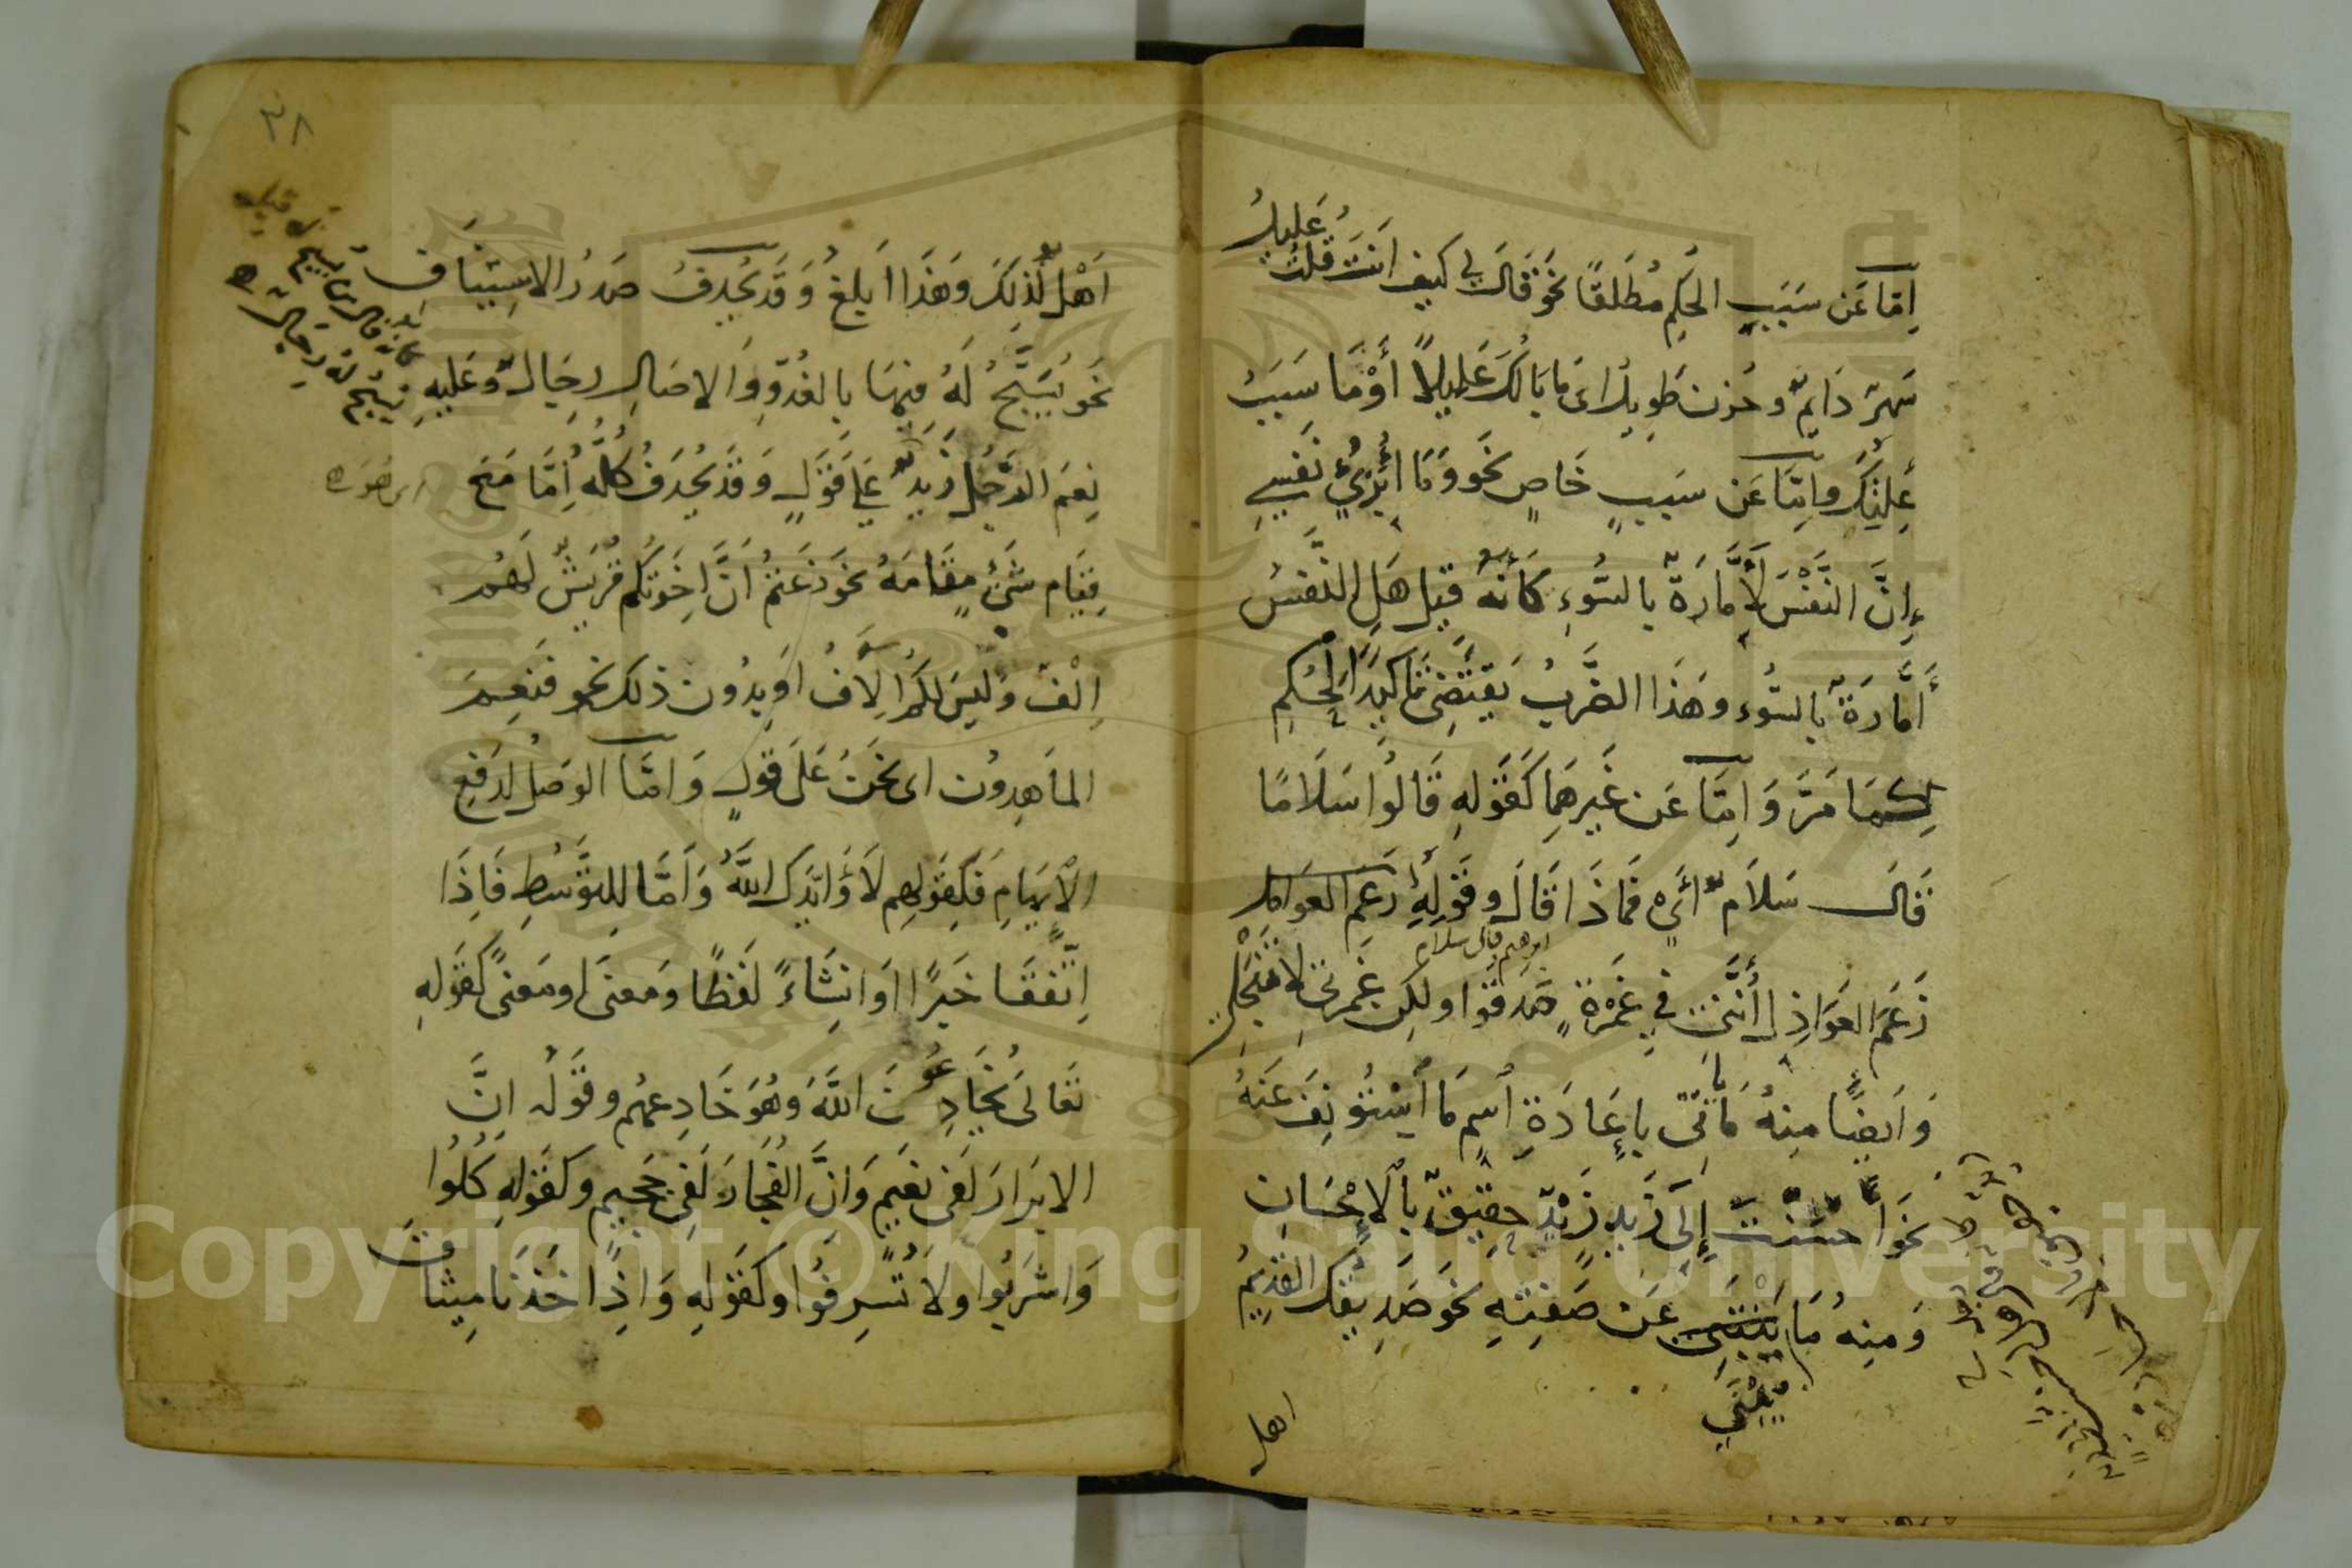 اِمّا عَن سَبَبِ الحُكِم مُطلَقًا نَحوُ قَالَ لِي كَيفَ اَنتَ قُلتُ عَلِيلُ
سَهَرٌ دَائمٌ وحُزن طَوِيلُ اى مَا بَالُكَ عَلِيلًا أَوْ مَا سَبَبُ
عِلَّتِكَ واِمّا عَن سَبَبٍ خَاصٍ نَحو وَمَا اُبَرِّئُ نَفسِي
إِنَّ النَّفْسَ لَأَمَّارَةٌ بالسُّوءِ كَأَنَّهُ قِيل هَلِ النَّفسُ
أَمَّارَةٌ بالسُّوء وهَذَا الضَّربُ يَقتَضِى تَاكِيدَ الحُكمِ
كَمَا مَرَّ وَاِمّا عَن غَيرِهِمَا كَقَولِهِ قَالُوا سَلَامًا
قَالَ سَلَامٌ اَىْ فَمَاذَا قَالَ وقَولِهِ زَعَمَ العَوَاذِل
ابرهيم قال سلام
زَعَمَ العَوَاذِل أَنَّنِي فِي غَمْرَةٍ صَدَقُوا ولكِن غَمرَتِي لا تَنجَلِي
وَاَيضًا مِنهُ مَا يَأتِى بإِعَادَةِ اسمِ مَا اسْتُؤنِفَ عَنهُ
نَحوُ أَحسَنتَ إِلَى زَيدٍ زَيْدٌ حقِيقٌ بالاِحْسَانِ
وَمِنهُ مَا يَبْتَنِى عَن صِفَتِهِ نَحوُ صَدِيقُكَ القَدِيمُ
يُبْنَى
اهل
٣٨
اَهْلٌ لِذلِكَ وَهَذَا اَبلَغُ وَقَد يُحذِفُ صَدرُ الاِستِينَافِ
نَحوُ يُسَبَّحُ لَهُ فِيهَا بِالغُدُوِّ وَالاصَالِ رِجَالٌ وعَلَيهِ
كانه قال من يسبح
يسبح له رجال
نِعمَ الرَّجُلُ زَيدٌ عَلَى قَولٍ وَقَد يُحذَفُ كُلُّهُ اِمَّا مَعَ
اى هو
قِيَامِ شَىءٍ مَقَامَهُ نَحوُ زَعَمتُم اَنَّ اِخوَتَكُم قُرَيشٌ لَهُم
اِلْفٌ ولَيسَ لَكُم اِلَافُ اَو بِدُون ذلكَ نَحو فَنِعمَ
المَاهِدُون اى نَحنُ عَلَى قَولٍ وَاَمّا الوَصلُ لِدَفعِ
الاِيهَامِ فَكَقَولِهِم لَا وَاَيَّدَكَ اللَّهُ وَاَمَّا لِلتَّوَسُّطِ فَاِذَا
اِتَّفَقَا خَبَرًا اَو اِنشَاءً لَفظًا ومَعنَى او مَعنًى كَقَولِهِ
تَعَالَى يُخَادِعُونَ اللَّهَ وَهُوَ خَادِعهُم وقَولُه اِنَّ
الابَرَارَ لَفِى نَعِيمٍ وَاِنَّ الفُجَّارَ لَفِى جَحِيمٍ وكَقَولِهِ كُلُوا
وَاشرَبُوا ولَا تُسرِفُوا وكَقَولِهِ وَاِذ اَخَذنَا مِيثَاقَ
Copyright © King Saud University